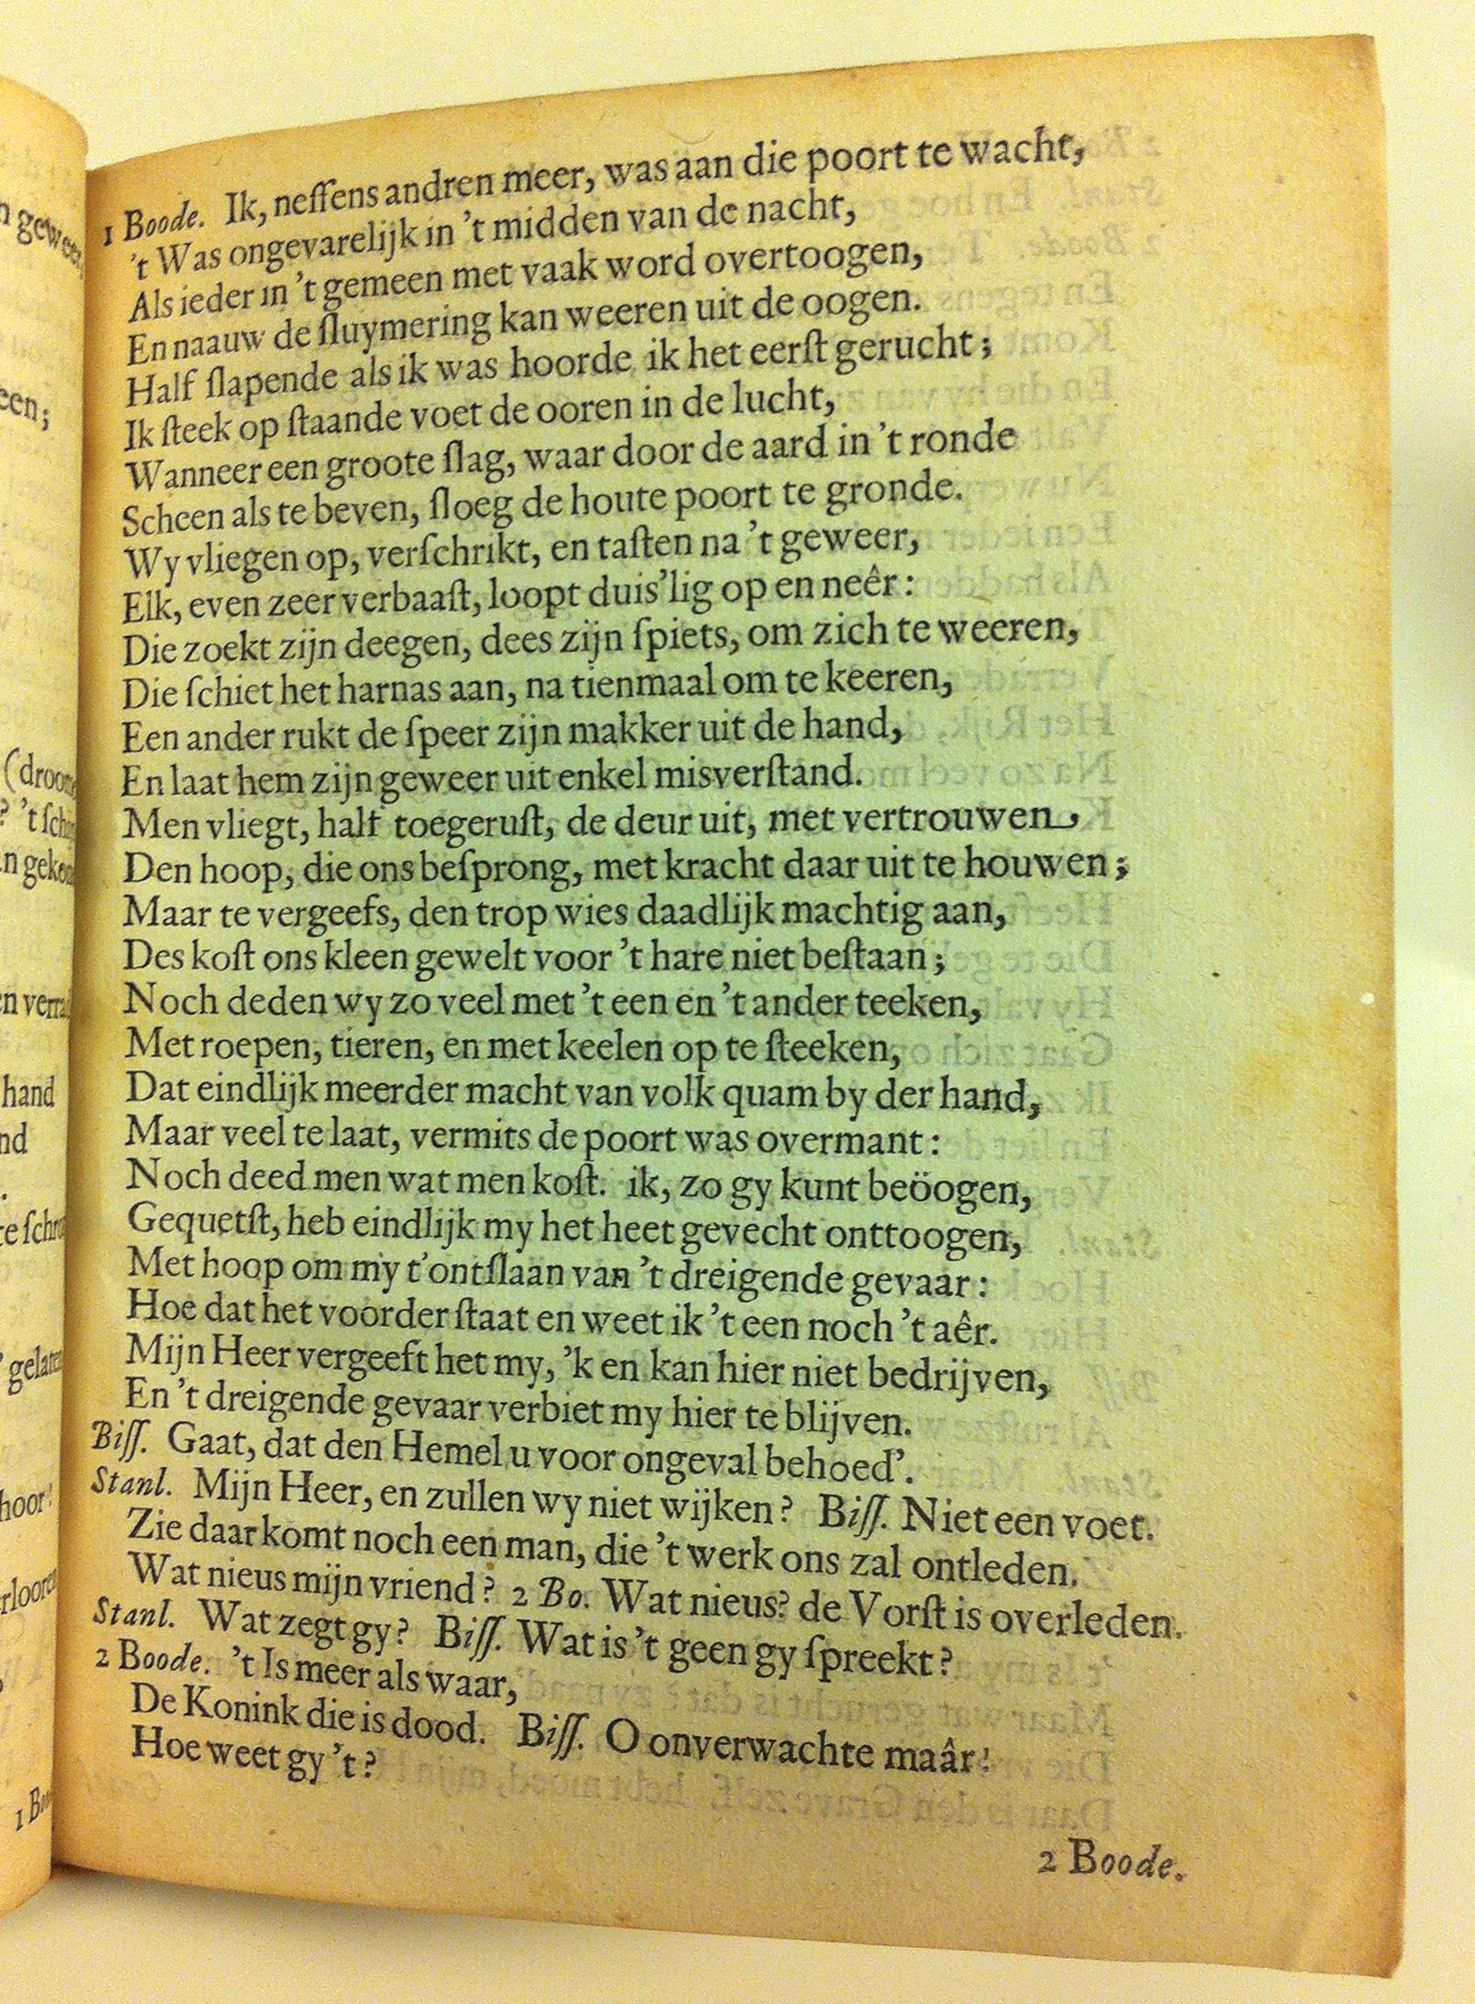 1 Boode. Ik, neſſens andren meer, was aan die poort te wacht,
't Was ongevarelijk in 't midden van de nacht,
Als ieder in 't gemeen met vaak word overtoogen,
En naauw de ſluymering kan weeren uit de oogen.
Half ſlapende als ik was hoorde ik het eerſt gerucht;
Ik ſteek op ſtaande voet de ooren in de lucht,
Wanneer een groote ſlag, waar door de aard in 't ronde
Scheen als te beven, ſloeg de houte poort te gronde.
Wy vliegen op, verſchrikt, en taſten na 't geweer,
Elk, even zeer verbaaſt, loopt duis'lig op en neêr:
Die zoekt zijn deegen, dees zijn ſpiets, om zich te weeren,
Die ſchiet het harnas aan, na tienmaal om te keeren,
Een ander rukt de ſpeer zijn makker uit de hand,
En laat hem zijn geweer uit enkel misverſtand.
Men vliegt, half toegeruſt, de deur uit, met vertrouwen,
Den hoop, die ons beſprong, met kracht daar uit te houwen;
Maar te vergeefs, den trop wies daadlijk machtig aan,
Des koſt ons kleen gewelt voor 't hare niet beſtaan;
Noch deden wy zo veel met 't een en 't ander teeken,
Met roepen, tieren, en met keelen op te ſteeken,
Dat eindlijk meerder macht van volk quam by der hand,
Maar veel te laat, vermits de poort was overmant:
Noch deed men wat men koſt. ik, zo gy kunt beöogen,
Gequetſt, heb eindlijk my het heet gevecht onttoogen,
Met hoop om my t'ontſlaan van 't dreigende gevaar:
Hoe dat het voorder ſtaat en weet ik 't een noch 't aêr.
Mijn Heer vergeeft het my, 'k en kan hier niet bedrijven,
En 't dreigende gevaar verbiet my hier te blijven.
Biſſ. Gaat, dat den Hemel u voor ongeval behoed'.
Stanl. Mijn Heer, en zullen wy niet wijken? Biſſ. Niet een voet.
Zie daar komt noch een man, die 't werk ons zal ontleden.
Wat nieus mijn vriend? 2 Bo. Wat nieus? de Vorſt is overleden.
Stanl. Wat zegt gy? Biſſ. Wat is 't geen gy ſpreekt?
2 Boode. 't Is meer als waar,
De Konink die is dood. Biſſ. O onverwachte maâr!
Hoe weet gy 't?
2 Boode.